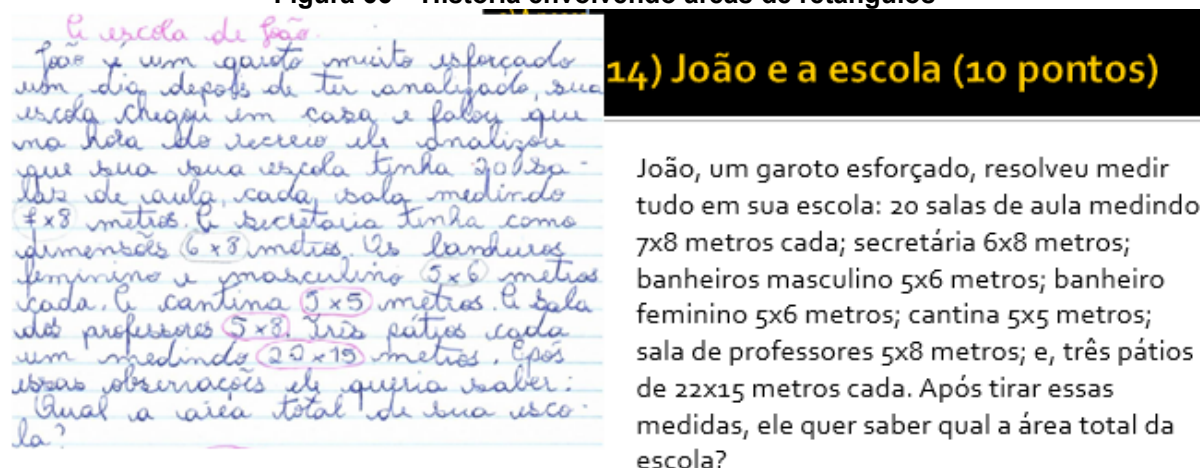 Figura 35 – História envolvendo áreas de retângulos
A escola de João
João é um garoto muito esforçado
um dia depois de ter analizado, sua
escola chegou em casa e falou que
na hora do recreio ele analizou
que sua sua escola tinha 20 sa-
las de aula, cada sala medindo
7x8 metros. A secretaria tinha como
dimensões 6x8 metros. Os banheiros
feminino e masculino 5x6 metros
cada. A cantina 5x5 metros. A sala
dos professores 5x8. Três pátios cada
um medindo 22x15 metros. Após
essas observações ele queria saber:
Qual a área total de sua esco-
la?
14) João e a escola (10 pontos)
João, um garoto esforçado, resolveu medir
tudo em sua escola: 20 salas de aula medindo
7x8 metros cada; secretária 6x8 metros;
banheiros masculino 5x6 metros; banheiro
feminino 5x6 metros; cantina 5x5 metros;
sala de professores 5x8 metros; e, três pátios
de 22x15 metros cada. Após tirar essas
medidas, ele quer saber qual a área total da
escola?